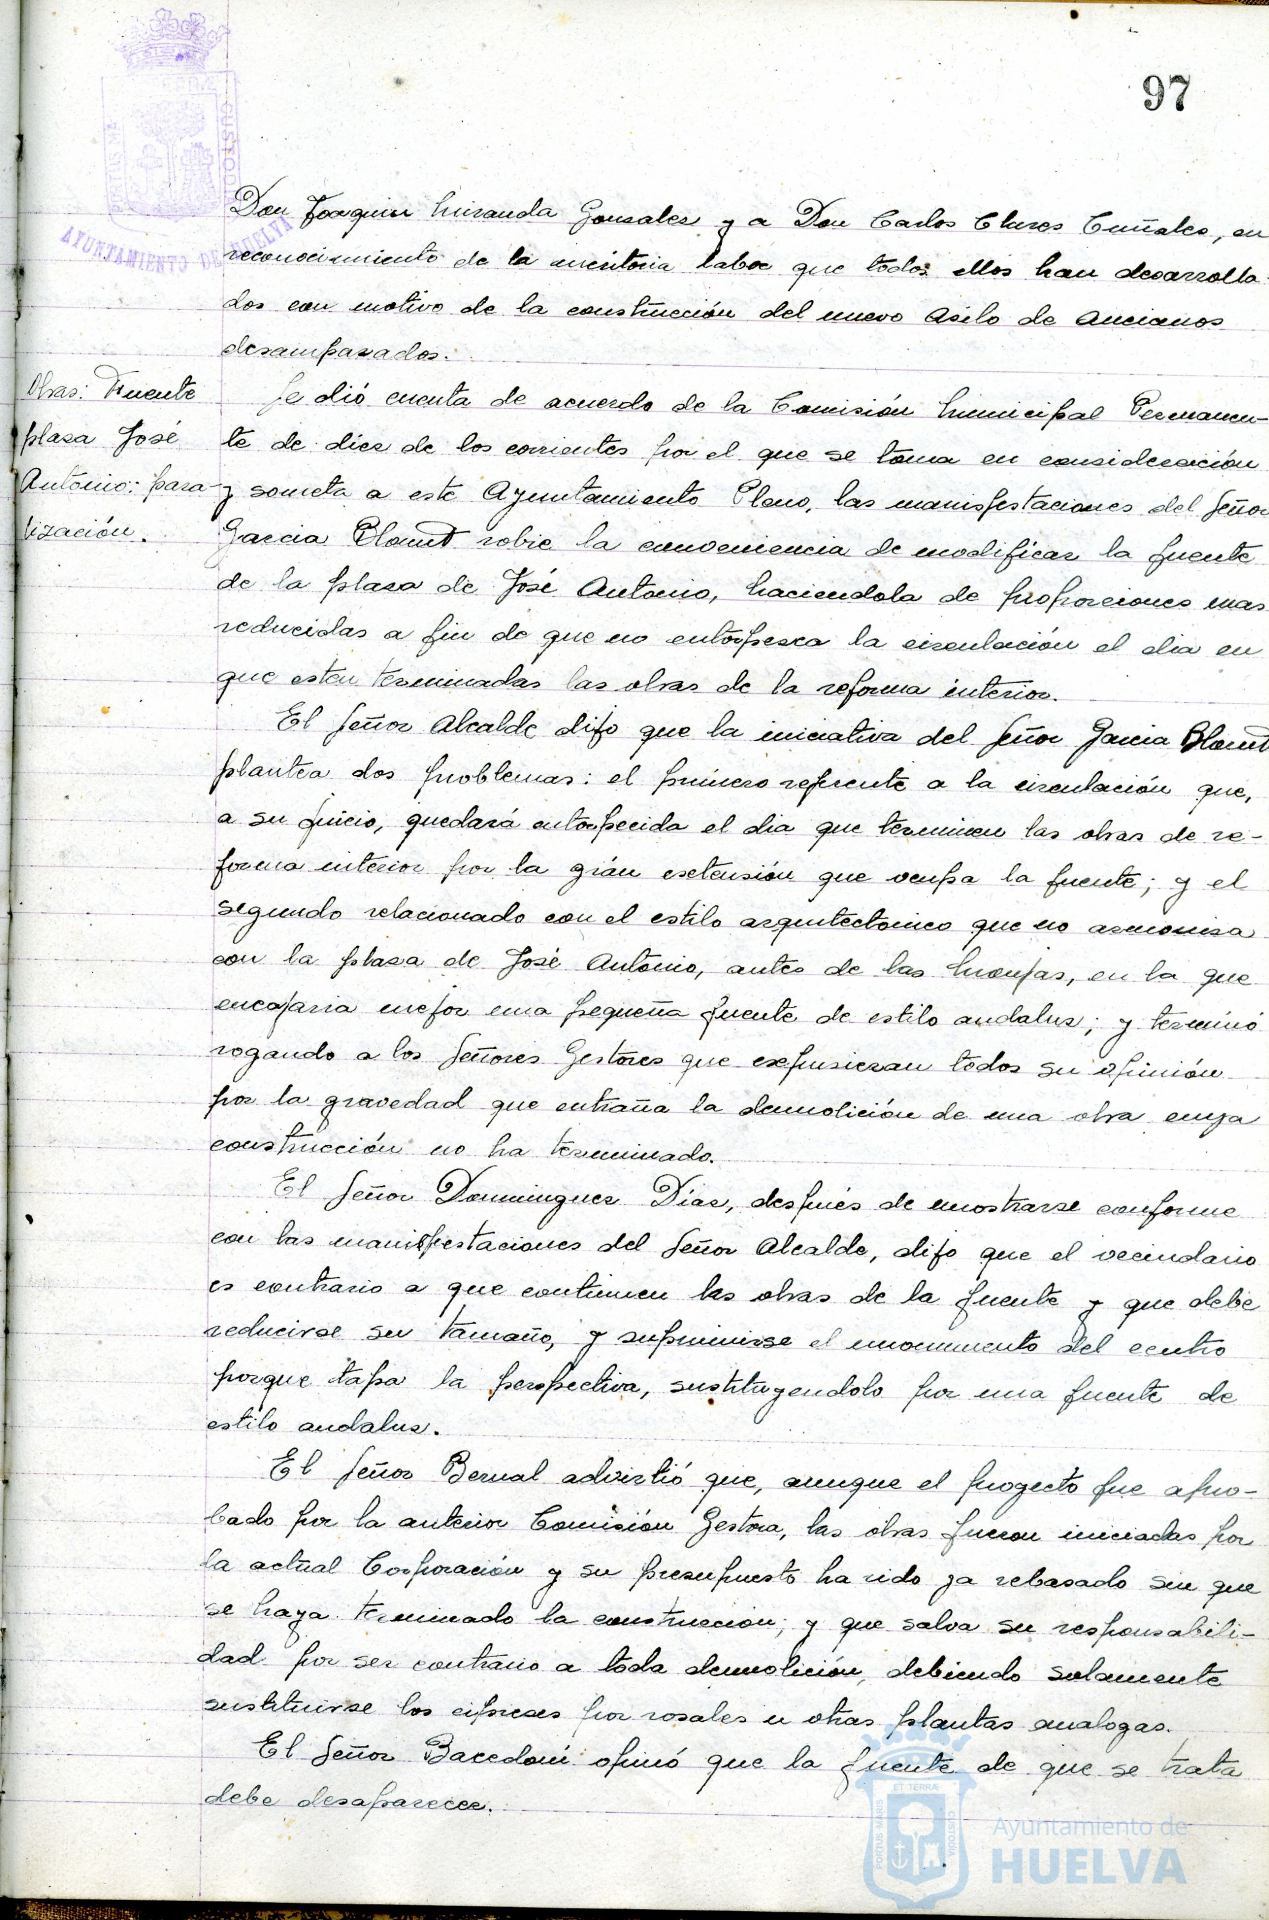 97
PORTUS MARIS
CUSTODIA
AYUNTAMIENTO DE HUELVA
Don Joaquin Miranda Gonzalez y a Don Carlos Cuñales, en
reconocimiento de la meritoria labor que todos ellos han desarrolla-
dos con motivo de la construcción del nuevo Asilo de Ancianos
desamparados.
Obras: Fuente
plaza José
Antonio: para-
lización.
Se dió cuenta de acuerdo de la Comisión Municipal Permanen-
te de diez de los corrientes por el que se toma en consideración
y someta a este Ayuntamiento Pleno, las manisfestaciones del Señor
Garcia sobre la conveniencia de modificar la fuente
de la plaza de José Antonio, haciendola de proporciones mas
reducidas a fin de que no entorpezca la circulación el dia en
que esten terminadas las obras de la reforma interior.
El Señor Alcalde dijo que la iniciativa del Señor Garcia
plantea dos problemas: el primero referente a la circulación que,
a su juicio, quedará entorpecida el dia que terminen las obras de re-
forma interior por la grán extensión que ocupa la fuente; y el
segundo relacionado con el estilo arquitectonico que no armoniza
con la plaza de José Antonio, antes de las Monjas, en la que
encajaria mejor una pequeña fuente de estilo andaluz; y terminó
rogando a los Señores Gestores que expusieran todos su opinión
por la gravedad que entraña la demolición de una obra cuya
construcción no ha terminado.
El Señor Dominguez Díaz, después de mostrarse conforme
con las manisfestaciones del Señor Alcalde, dijo que el vecindario
es contrario a que continuen las obras de la fuente y que debe
reducirse su tamaño, y suprimirse el monumento del centro
porque tapa la perspectiva, sustituyendolo por una fuente de
estilo andaluz.
El Señor Bernal advirtió que, aunque el proyecto fue apro-
bado por la anterior Comisión Gestora, las obras fueron iniciadas por
la actual Corporación y su presupuesto ha sido ya rebasado sin que
se haya terminado la construccion; y que salva su responsabili-
dad por ser contrario a toda demolición, debiendo solamente
sustituirse los cipreses por rosales u otras plantas analogas.
El Señor opinó que la fuente de que se trata
debe desaparecer.
ET TERRÆ
PORTUS MARIS
CUSTODIA
Ayuntamiento de
HUELVA